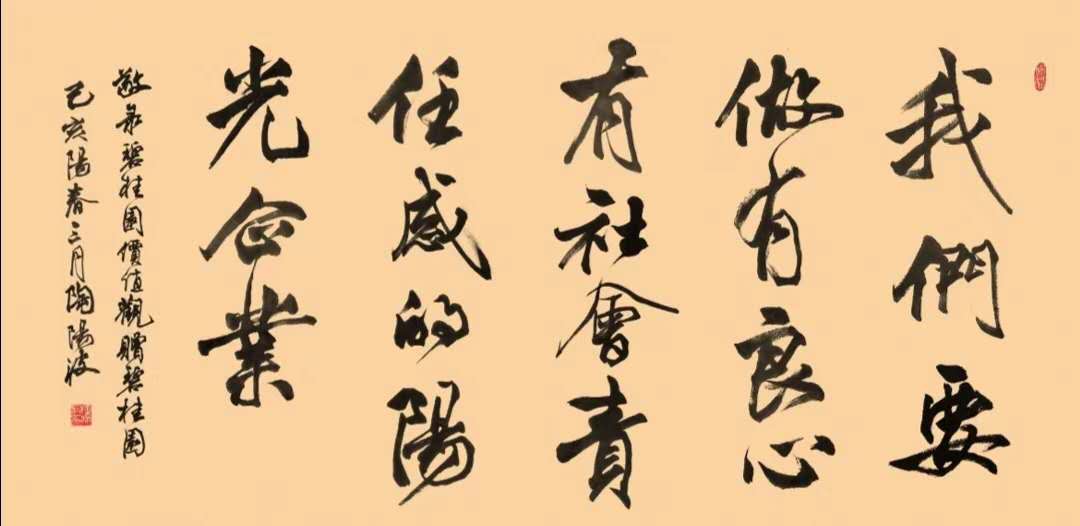 我們要
做有良心
有社會責
任感的陽
光企業
敬录碧桂園價值觀贈碧桂園
己亥陽春三月陶陽波